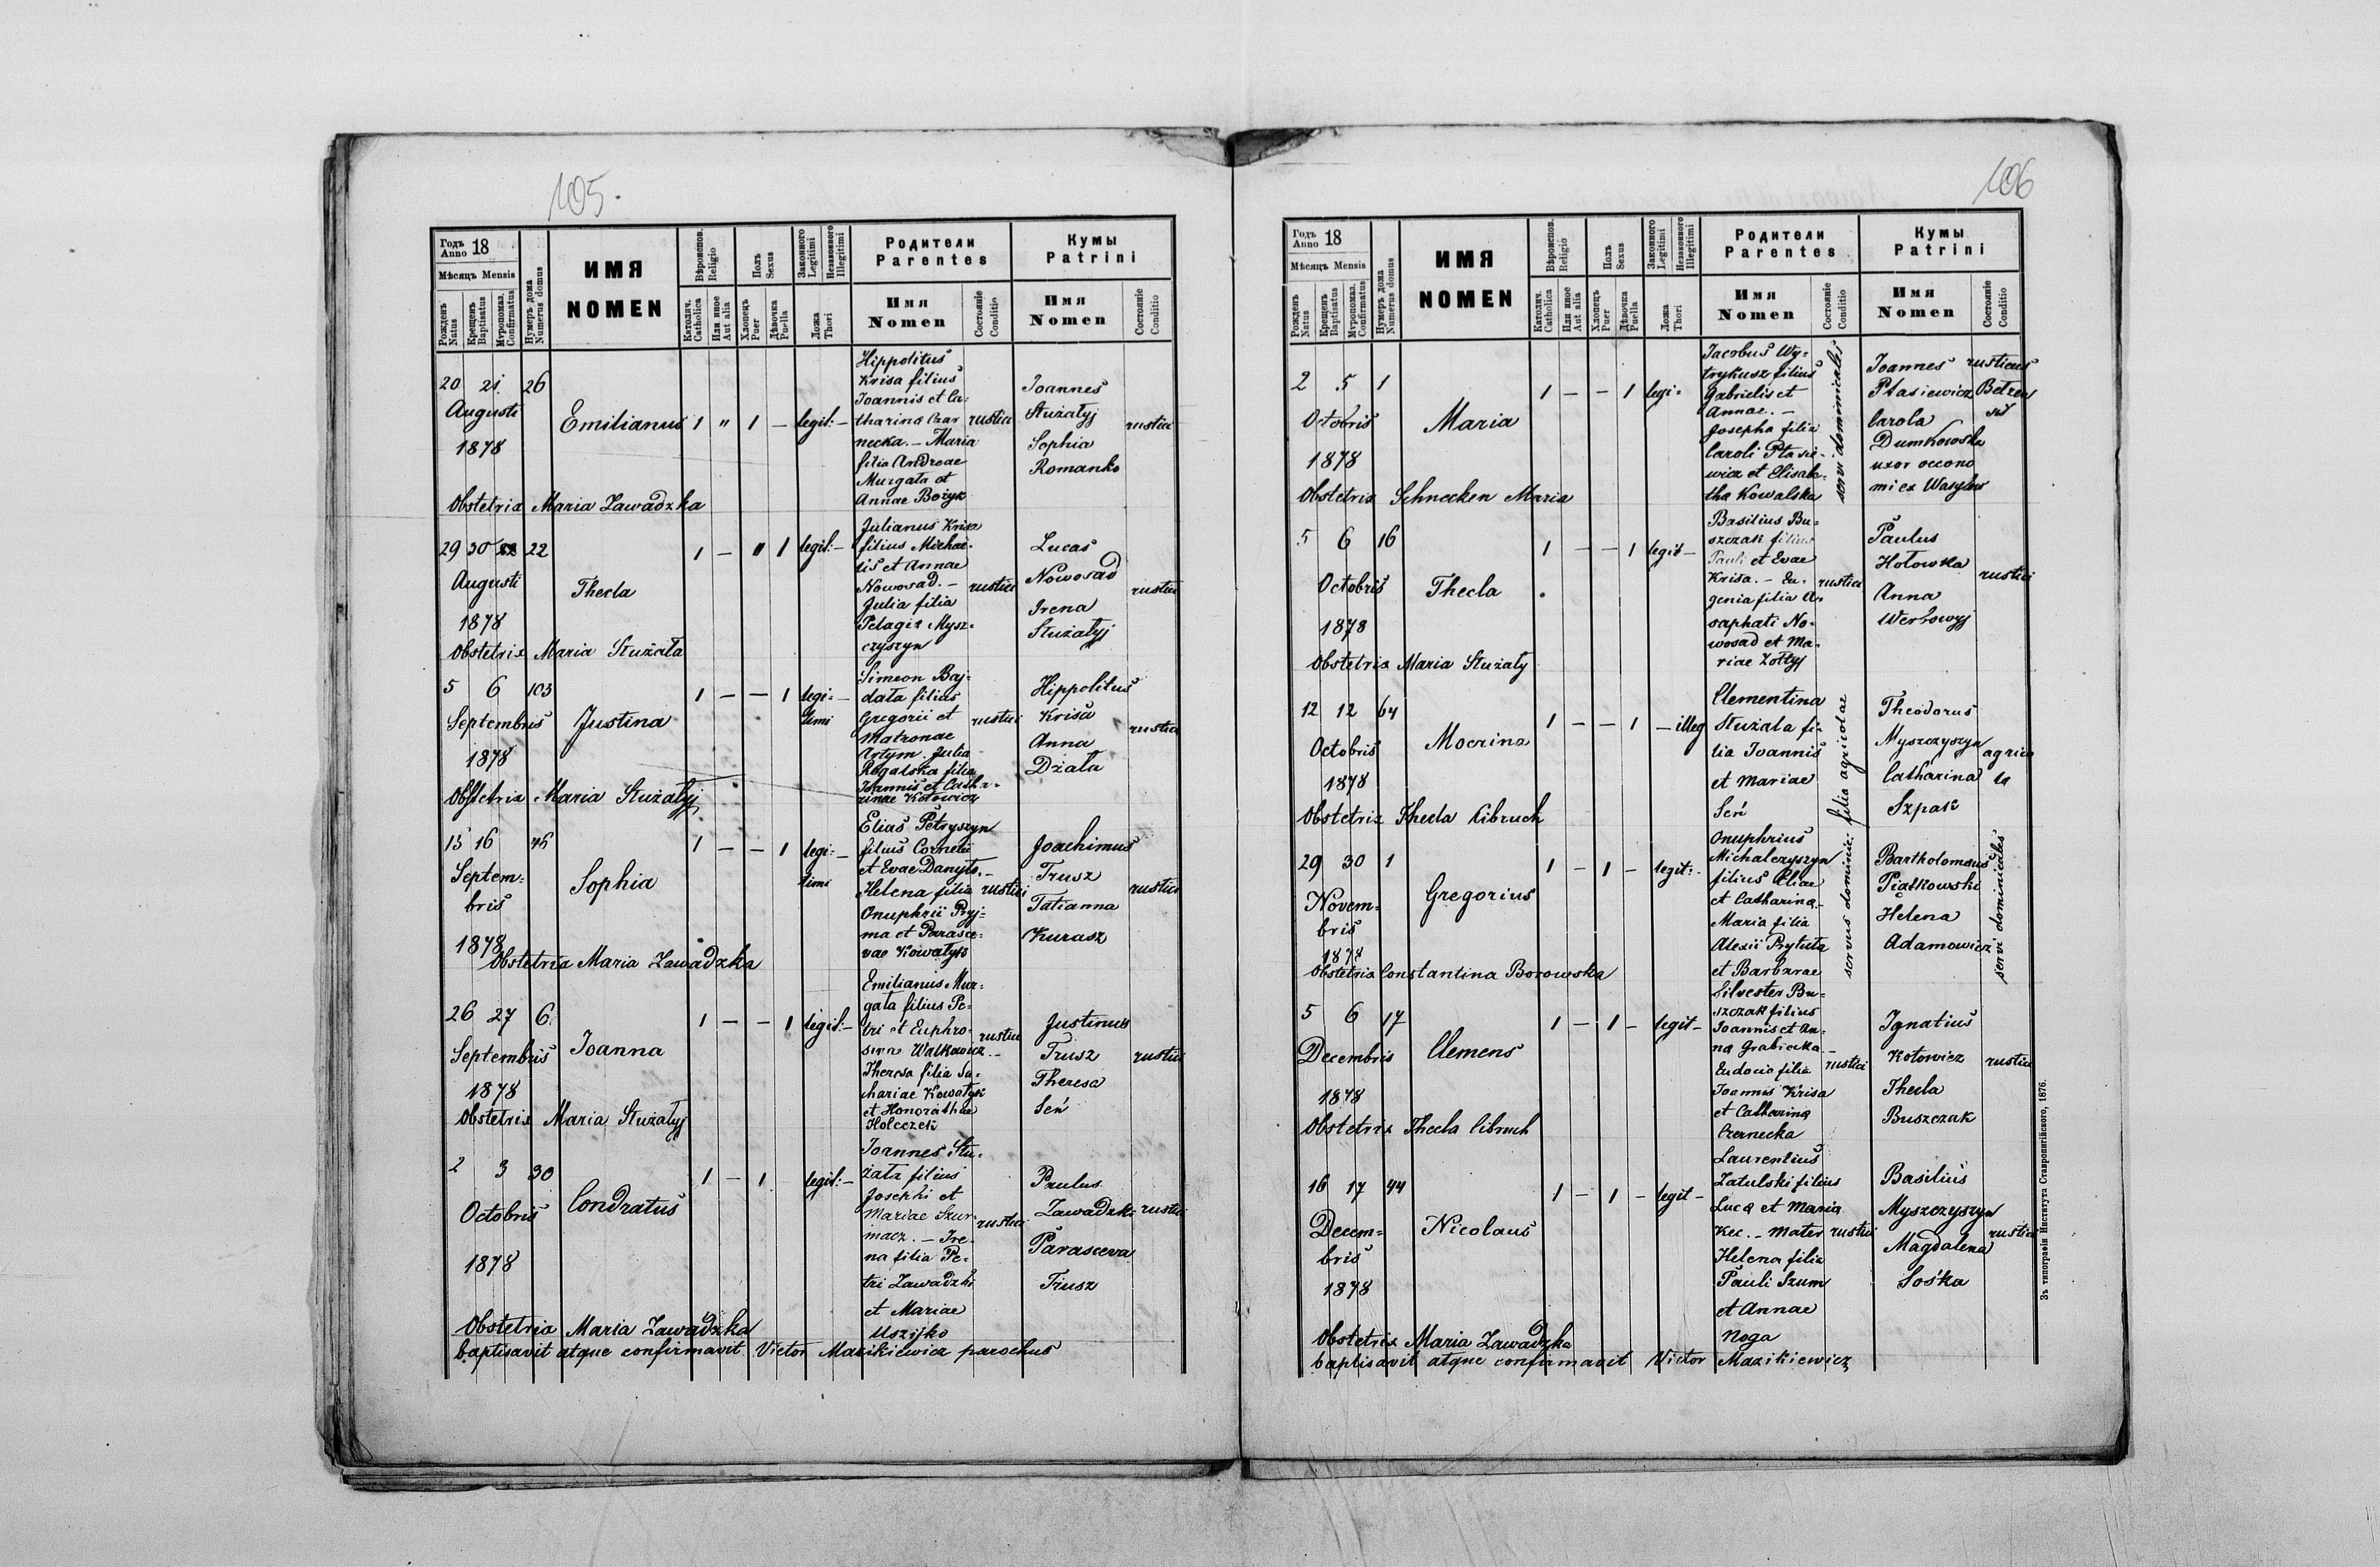 105.
Годъ Anno 18
Мѣсяцъ Mensis
Рожденъ Natus
Крещенъ Baptisatus
Мѵропомаз. Confirmatus
Нумеръ дома Numerus domus
ИМЯ
NOMEN
Вѣроиспов. Religio
Католич. Catholica
Или иное Aut alia
Полъ Sexus
Хлопецъ Puer
Дѣвочка Puella
Законного Legitimi
Незаконного Illegitimi
Ложа Thori
Родители
Parentes
Имя
Nomen
Состояніе Conditio
Кумы
Patrini
Имя
Nomen
Состояніе Conditio
20 21 26
Augusti
1878
Emilianus 1 " 1 — legit: —
Hippolitus
Krisa filius
Joannis et Ca-
tharina Czar
necka. — Maria
filia Andreae
Murgała et
Annae Bożyk
rustici
Joannes
Stużałyj
Sophia
Romanko
rustici
Obstetrix Maria Zawadzka
29 30 22
Augusti
1878
Thecla 1 — " 1 legit: —
Julianus Krisa
filius Michae-
lis et Annae
Nowosad. —
Julia filia
Pelagia Mysz-
czyszyn
rustici
Lucas
Nowosad
Irena
Stużałyj
rustici
Obstetrix Maria Stużała
5 6 103
Septembris
1878
Justina 1 — — 1 legi- —
timi
Simeon Baj-
data filius
Gregorii et
Matronae
Artym. Julia
Rogalska filia
Joannis et Catha-
rinae Kotowicz
rustici
Hippolitus
Krisa
Anna
Działa
rustici
Obstetrix Maria Stużałyj
15 16 45
Septem-
bris
1878
Sophia 1 — — 1 legi- —
timi
Elias Petryszyn
filius Cornelii
et Evae Danyło. —
Helena filia
Onuphrii Pryj-
ma et Parasce-
vae Kowałyk
rustici
Joachimus
Trusz
Tatianna
Kurasz
rustici
Obstetrix Maria Zawadzka
26 27 6
Septembris
1878
Joanna 1 — — 1 legit: —
Emilianus Mur-
gała filius Pe-
tri et Euphro-
sinae Walkowicz. —
Theresa filia Za-
chariae Kowałyk
et Honorathae
Holeczek
rustici
Justinus
Trusz
Theresa
Seń
rustici
Obstetrix Maria Stużałyj
2 3 30
Octobris
1878
Condratus 1 — 1 legit: —
Joannes Stu-
żała filius
Josephi et
Mariae Szur-
macz. — Ire-
na filia Pe-
tri Zawadzki
et Mariae
Uszijko
rustici
Paulus
Zawadzki
Parasceva
Trusz
rustici
Obstetrix Maria Zawadzka
baptisavit atque confirmavit Victor Mazikiewicz parochus
106
Годъ Anno 18
Мѣсяцъ Mensis
Рожденъ Natus
Крещенъ Baptisatus
Мѵропомаз. Confirmatus
Нумеръ дома Numerus domus
ИМЯ
NOMEN
Вѣроиспов. Religio
Католич. Catholica
Или иное Aut alia
Полъ Sexus
Хлопецъ Puer
Дѣвочка Puella
Законного Legitimi
Незаконного Illegitimi
Ложа Thori
Родители
Parentes
Имя
Nomen
Состояніе Conditio
Кумы
Patrini
Имя
Nomen
Состояніе Conditio
2 5 1
Octobris
1878
Maria 1 — — 1 legi-
Jacobus Wy-
trykusz filius
Gabrielis et
Annae. —
Josepha filia
Caroli Ptasie-
wicz et Elisabe-
tha Kowalska
servi dominicales
Joannes rusticus
Ptasiewicz Betzen
sis
Carola
Dumkowska
uxor oecono
mi ex Wasylow
Obstetrix Schnecken Maria
5 6 16
Octobris
1878
Thecla 1 — — 1 legit —
Basilius Bu-
szczak filius
Pauli et Evae
Krisa. — Eu-
genia filia A-
saphati No-
wosad et Ma-
riae Żołtyj
rustici
Paulus
Hołowka
Anna
Werbowyj
rustici
Obstetrix Maria Stużały
12 12 64
Octobris
1878
Mocrina 1 — — 1 — illeg
Clementina
Stużała fi-
lia Joannis
et Mariae
Seń
filia agricolae
Theodorus
Myszczyszyn
Catharina
Szpak
agrico
la
Obstetrix Thecla Cibruch
29 30 1
Novem-
bris
1878
Gregorius 1 — 1 — legit: —
Onuphrius
Michalczyszyn
filius Eliae
et Catharina. —
Maria filia
Alexii Prytuła
et Barbarae
servus dominic:
Bartholomaus
Piątkowski
Helena
Adamowicz
servi dominicales
Obstetrix Constantina Borowska
5 6 17
Decembris
1878
Clemens 1 — 1 — legit —
Silvester Bu-
szczak filius
Joannis et An-
na Grabiecka. —
Eudocia filia
Joannis Krisa
et Catharina
Czernecka
rustici
Ignatius
Kotowicz
Thecla
Buszczak
rustici
Obstetrix Thecla Cibruch
16 17 44
Decem-
bris
1878
Nicolaus 1 — 1 — legit —
Laurentius
Zatulski filius
Luca et Maria
Kec. — Mater
Helena filia
Pauli Szum
et Annae
Noga
rustici
Basilius
Myszczyszyn
Magdalena
Sośka
rustici
Obstetrix Maria Zawadzka
baptisavit atque confirmavit Victor Mazikiewicz
Зъ типографіи Института Ставропигійского, 1876.